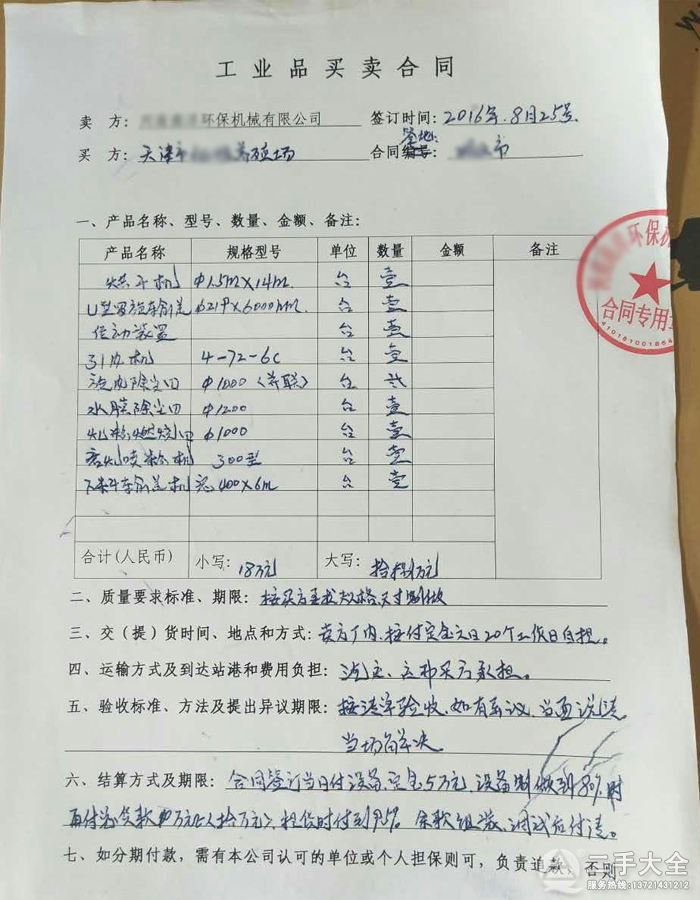 工业品买卖合同
卖 方: 环保机械有限公司 签订时间: 2016年8月25号
签地:
买 方: 天津市 养殖场 合同编号: 市
一、产品名称、型号、数量、金额、备注:
产品名称 规格型号 单位 数量 金额 备注
烘干机 φ1.5m×14m 台 壹
U型 输送 φ219×6000mm 台 壹
传动装置 台 壹
引风机 4-72-6C 台 壹
旋风除尘 φ1000(并联) 台 弍
水膜除尘 φ1200 台 壹
φ1000 台 壹
喷粉机 300型 台 壹
下料输送机 宽400×6m 台 壹
合计(人民币) 小写: 18万元 大写: 拾捌万元
二、质量要求标准、期限: 按买方要求规格尺寸制做
三、交(提)货时间、地点和方式: 卖方厂内、按付定金之日20个工作日自担。
四、运输方式及到达站港和费用负担: 汽运、买方承担。
五、验收标准、方法及提出异议期限: 按清单验收、如有异议、当面说清
当场解决
六、结算方式及期限: 合同签订当日付设备定金5万元、设备制做到80%时
再付 货款 万元 (拾万元)、提货时付到95% 余款组装、调试后付清。
七、如分期付款,需有本公司认可的单位或个人担保则可,负责追款,否则
环保机
合同专用章
二手大全
服务热线:13721431212